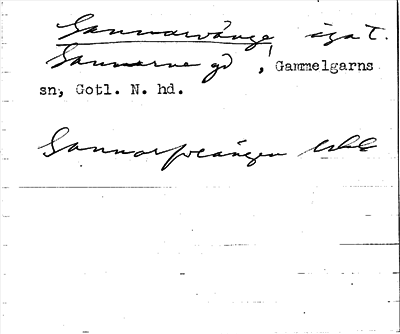 Sannarvänge
Sannarve gd, Gammelgarns
sn, Gotl. N. hd.
Sannarveängen